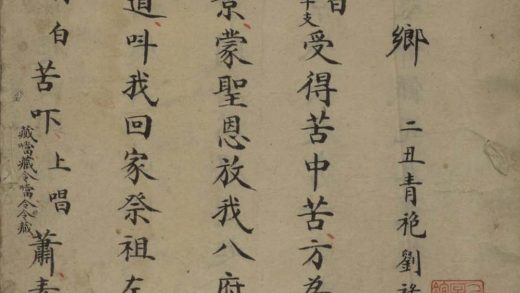 鄉 二丑青袍劉
白 受得苦中苦方為
景蒙聖恩放我八府
道叫我回家祭祖左
白 苦吓 上唱 蕭
藏噹藏令噹令令藏